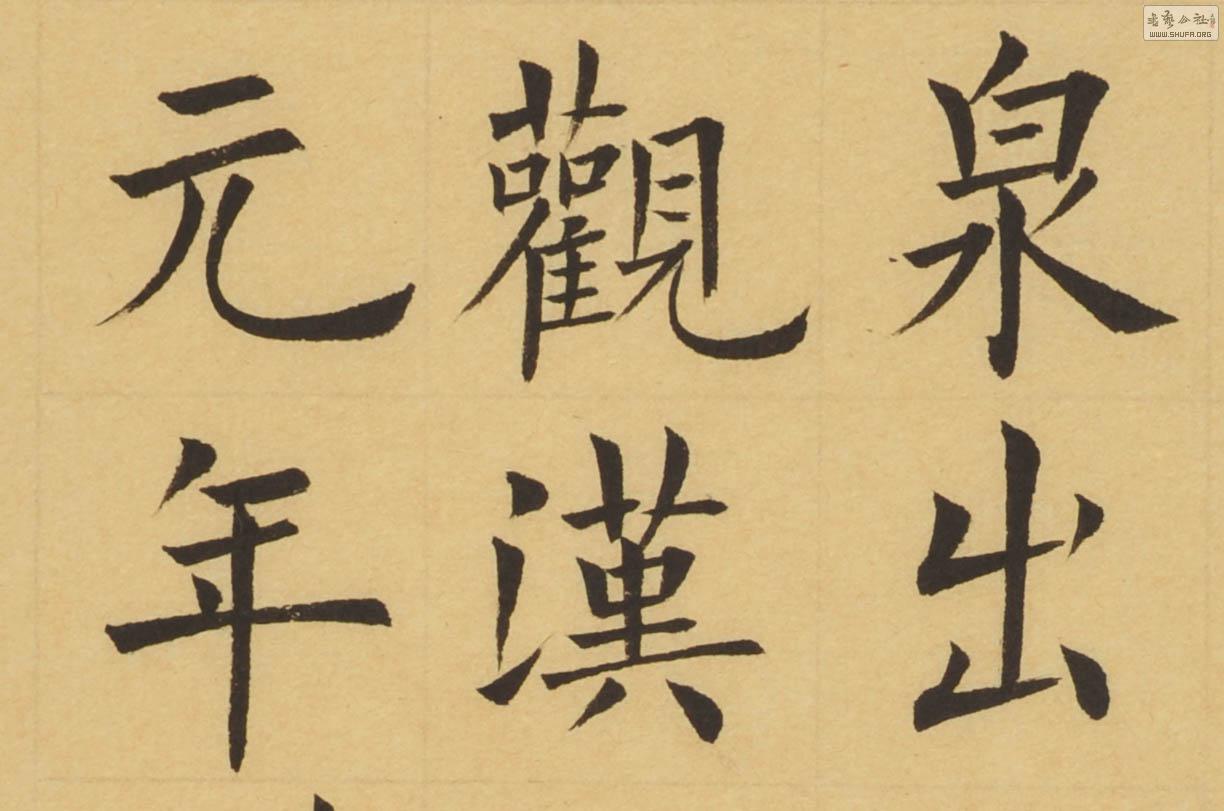 泉出
觀漢
元年
WWW.SHUFA.ORG